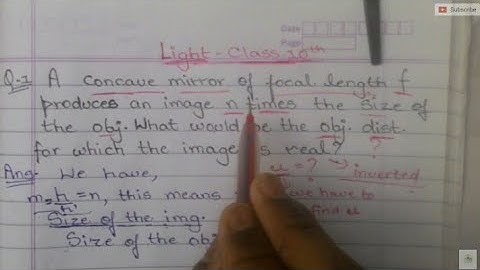 Subscribe
Date
Page
Light - Class 10th
Q-1 A concave mirror of focal length f
produces an image n times the size of
the obj. What would be the obj. dist.
for which the image is real?
?
inverted
Ans We have, u = ?
m = h/h' = n, this means we have to
find u
Size of the img.
Size of the obj